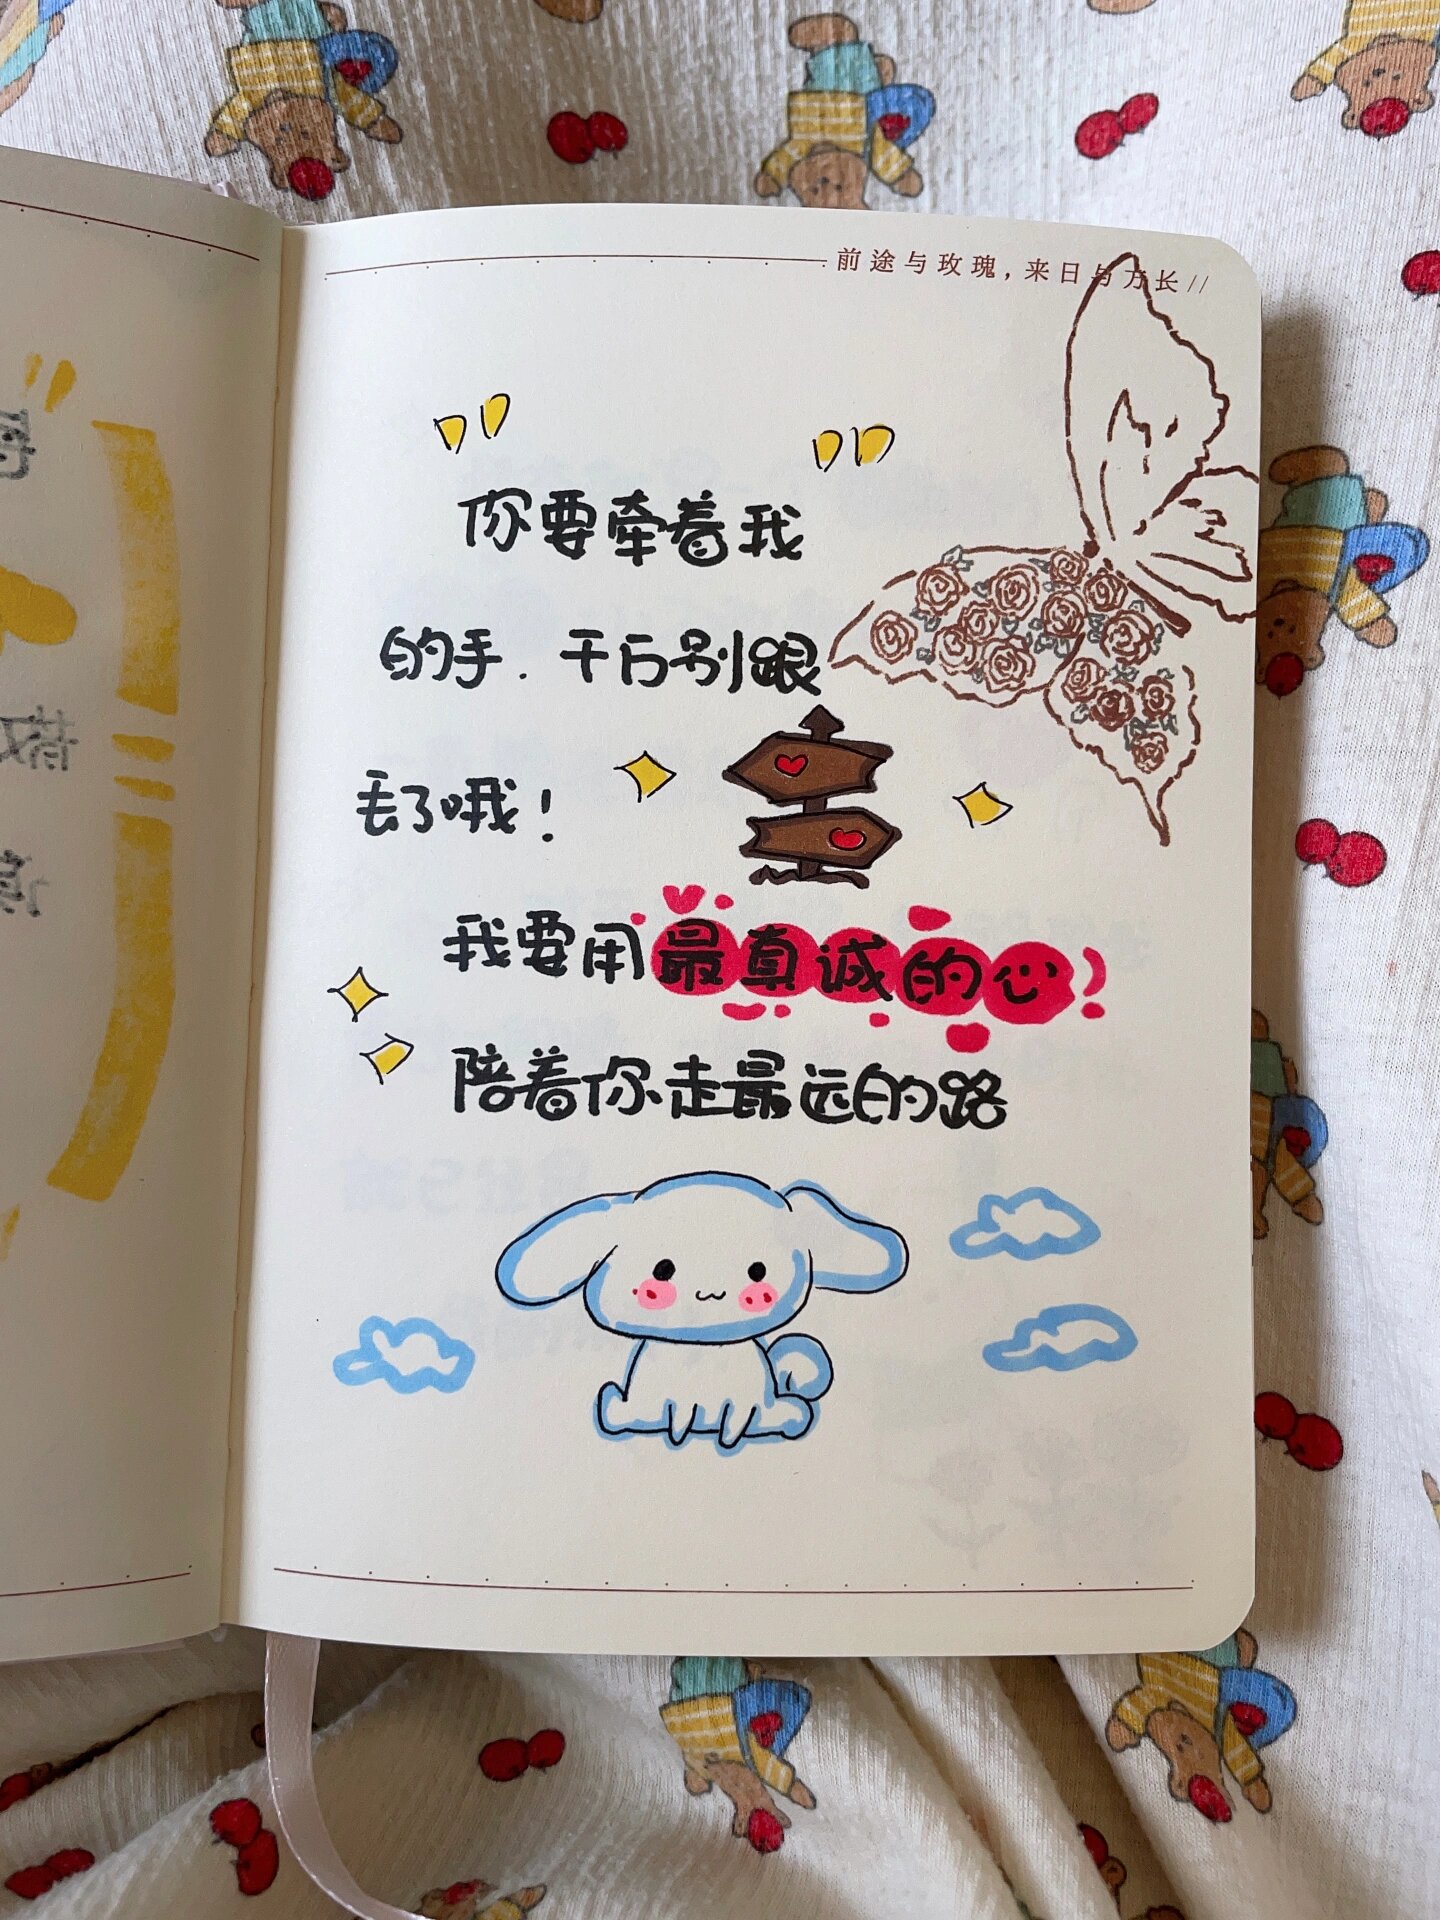 前途与玫瑰，来日与方长//
你要牵着我
的手．千万别跟
丢了哦！
我要用最真诚的心
陪着你走最远的路